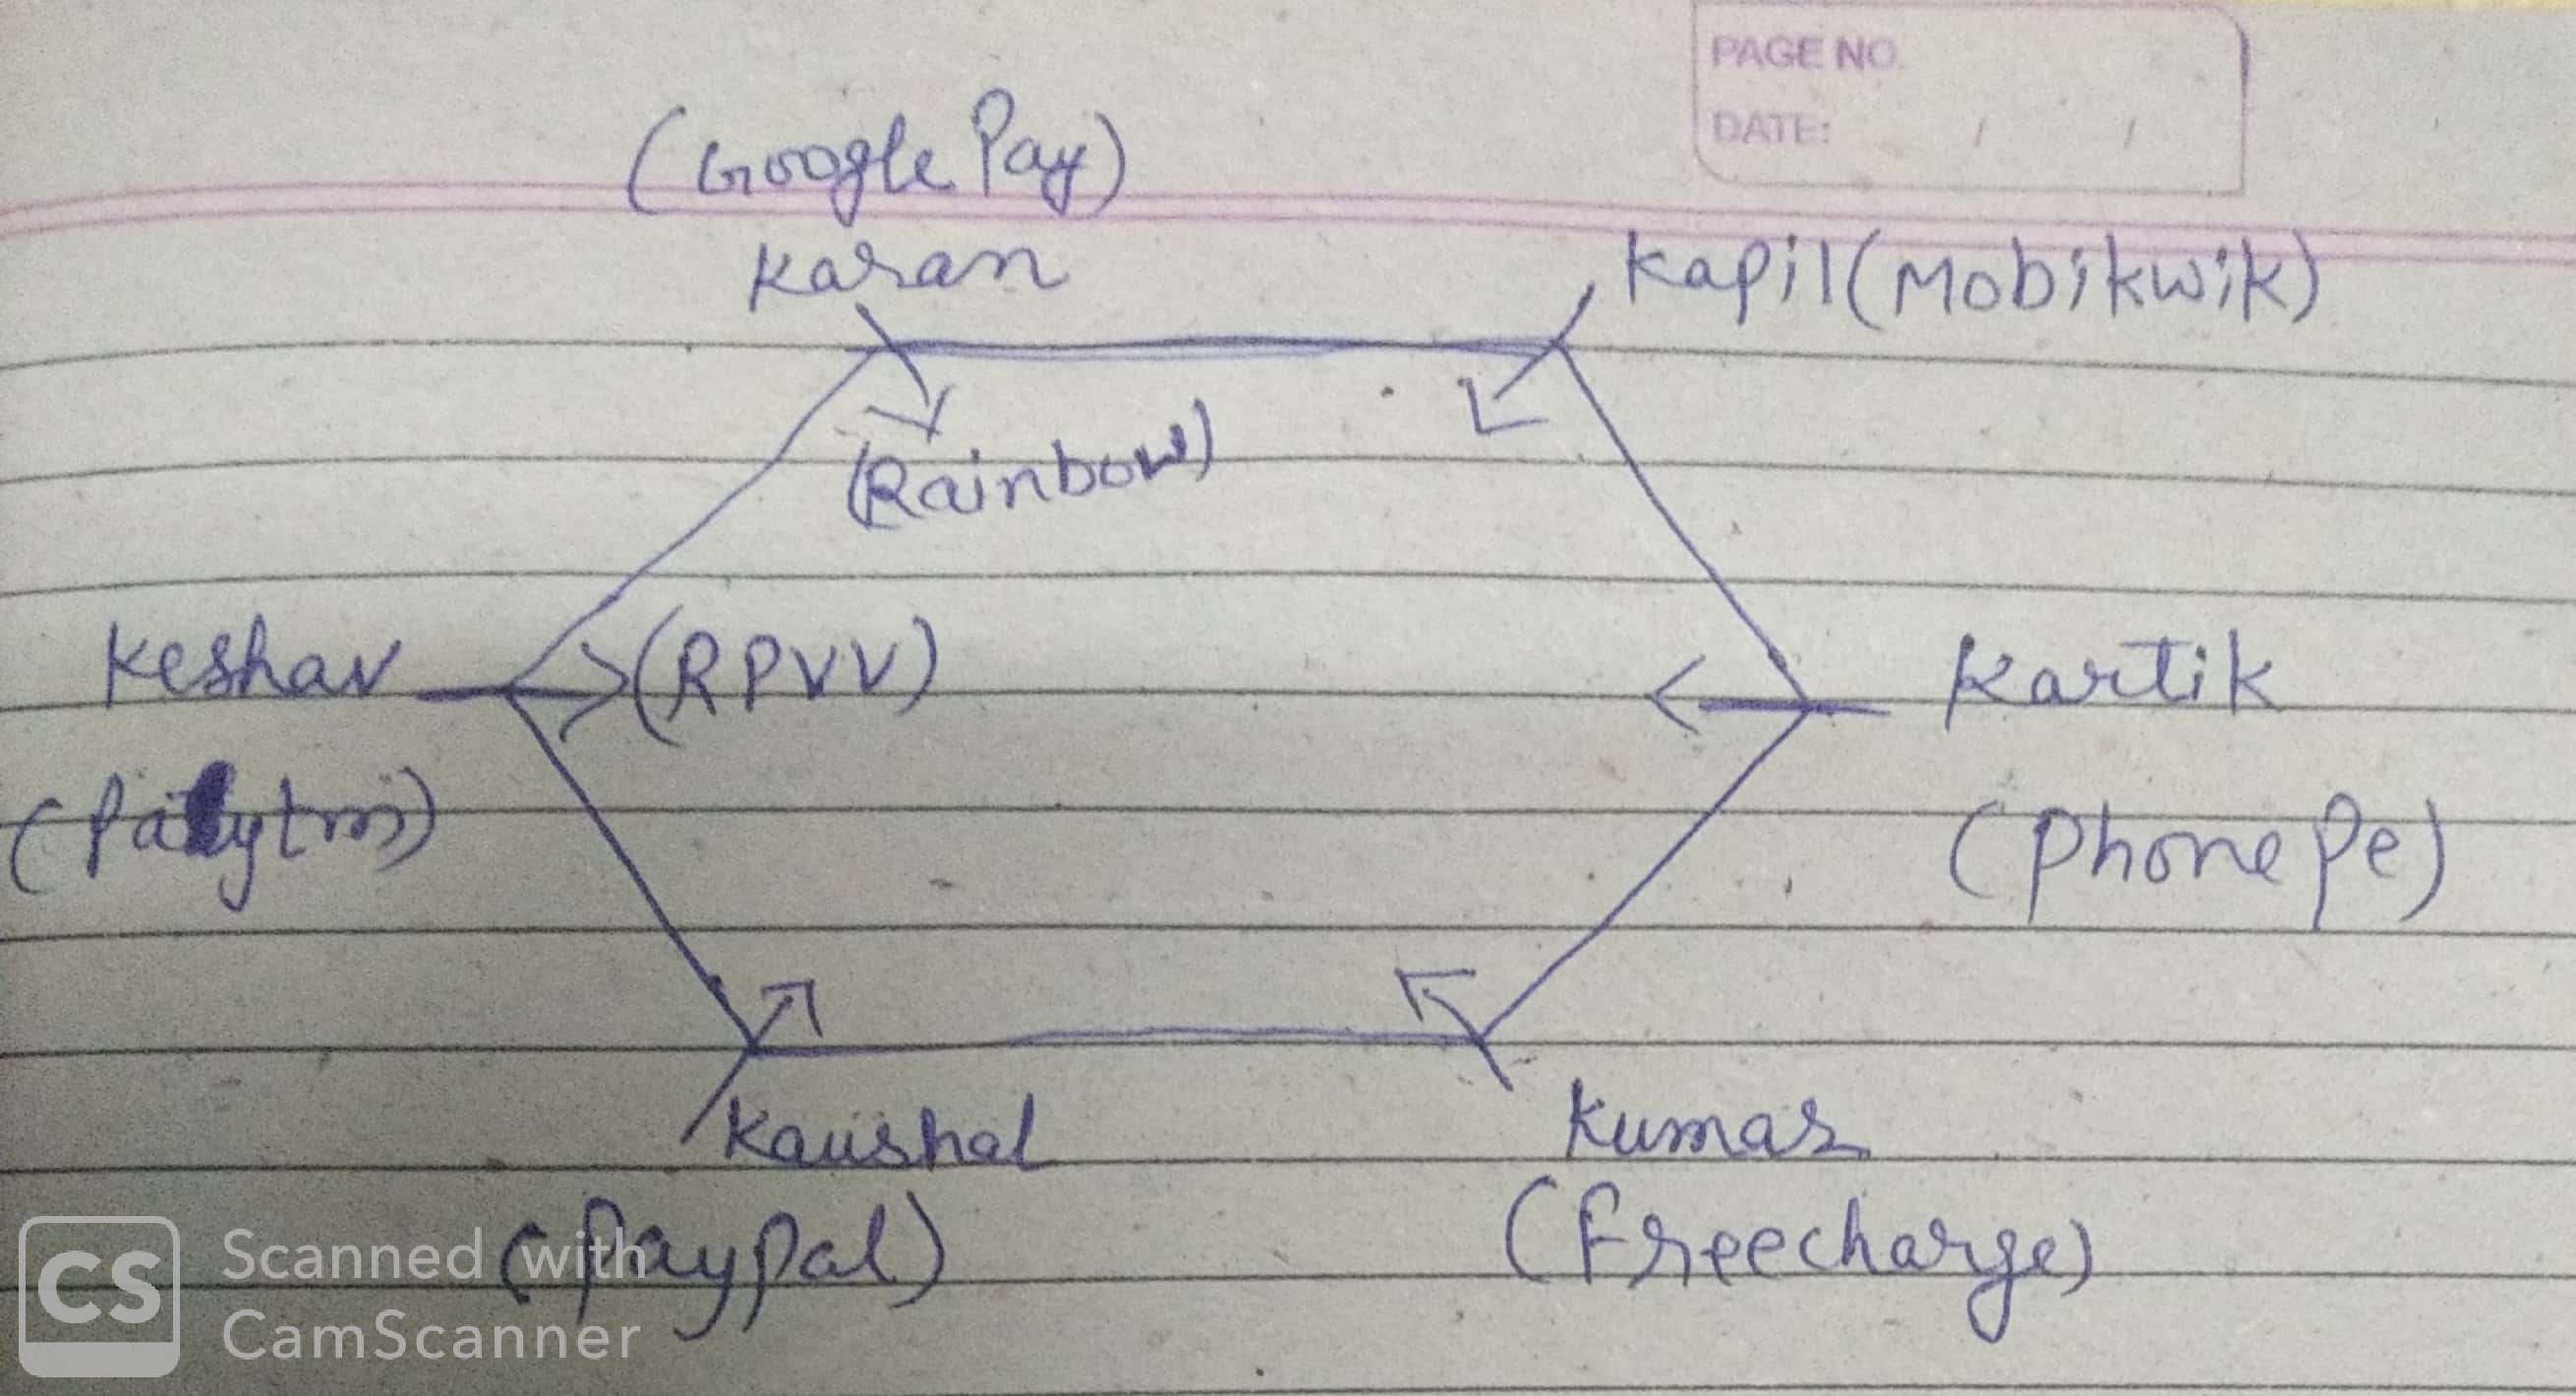 PAGE NO.
DATE: / /
(Google Pay)
Karan
Kapil (Mobikwik)
(Rainbow)
Keshav
(RPVV)
Kartik
(Paytm)
(Phone Pe)
Kaushal
Kumar
(PayPal)
(Freecharge)
CS
Scanned with
CamScanner